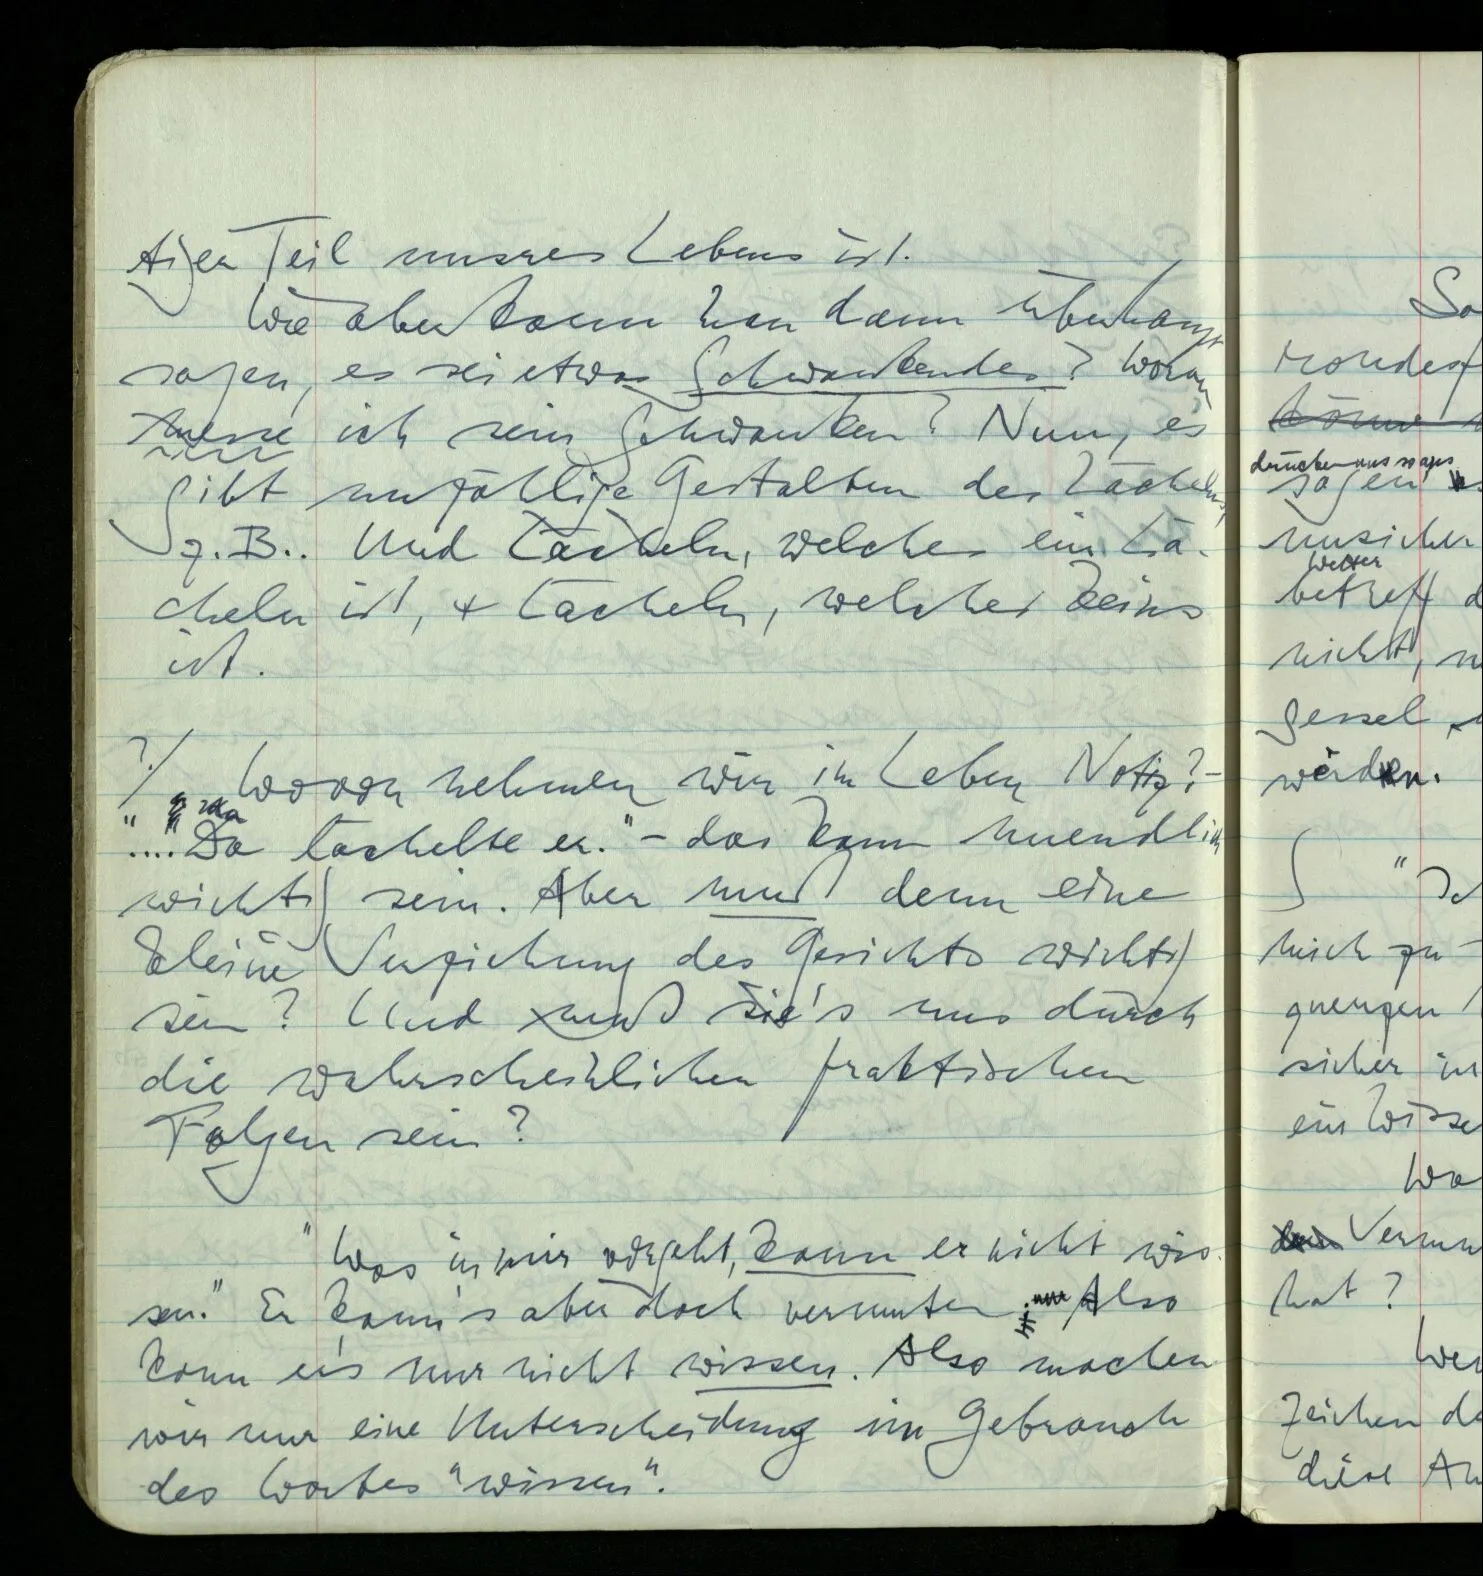 tiger Teil unsres Lebens ist.
Wie aber kann man dann überhaupt
sagen, es sei etwas Schwankendes? Woran
messe ich sein Schwanken? Nun, es
gibt unzählige Gestalten des Lächelns,
z.B.. Und Lächeln, welches ein Lä-
cheln ist, & Lächeln, welches keins
ist.
?/ Wovon nehmen wir im Leben Notiz? –
"....Da lächelte er." – das kann unendlich
wichtig sein. Aber muß denn eine
kleine Verziehung des Gesichts wichtig
sein? Und muß sie's uns durch
die wahrscheinlichen praktischen
Folgen sein?
"Was in mir vorgeht, kann er nicht wis-
sen." Er kann's aber doch vermuten. Also
kann er's nur nicht wissen. Also machen
wir nur eine Unterscheidung im Gebrauch
des Wortes "wissen".
So
könne
drücken aus
sagen
unsicher
Wetter
betreff
nicht,
gessel
werden.
∫
misch zu
sicher in
ein Wisse
Wa
Vermu
hat?
Wen
Zeichen de
diese An